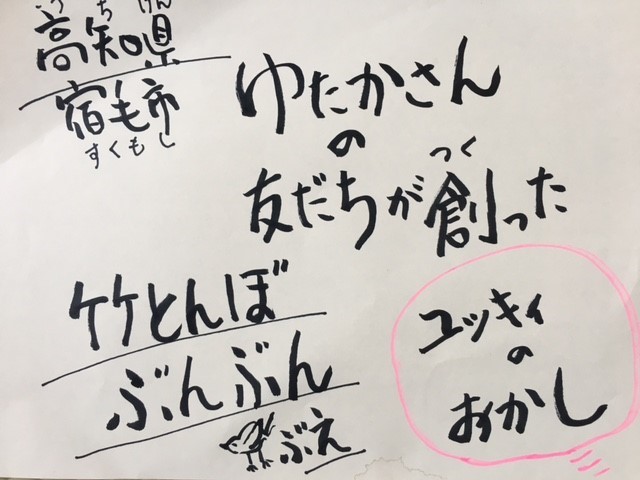 こうちけん
高知県
宿毛市
すくもし
ゆたかさん
の
つく
友だちが創った
竹とんぼ
ぶんぶん
ぶえ
ユッキィ
の
おかし